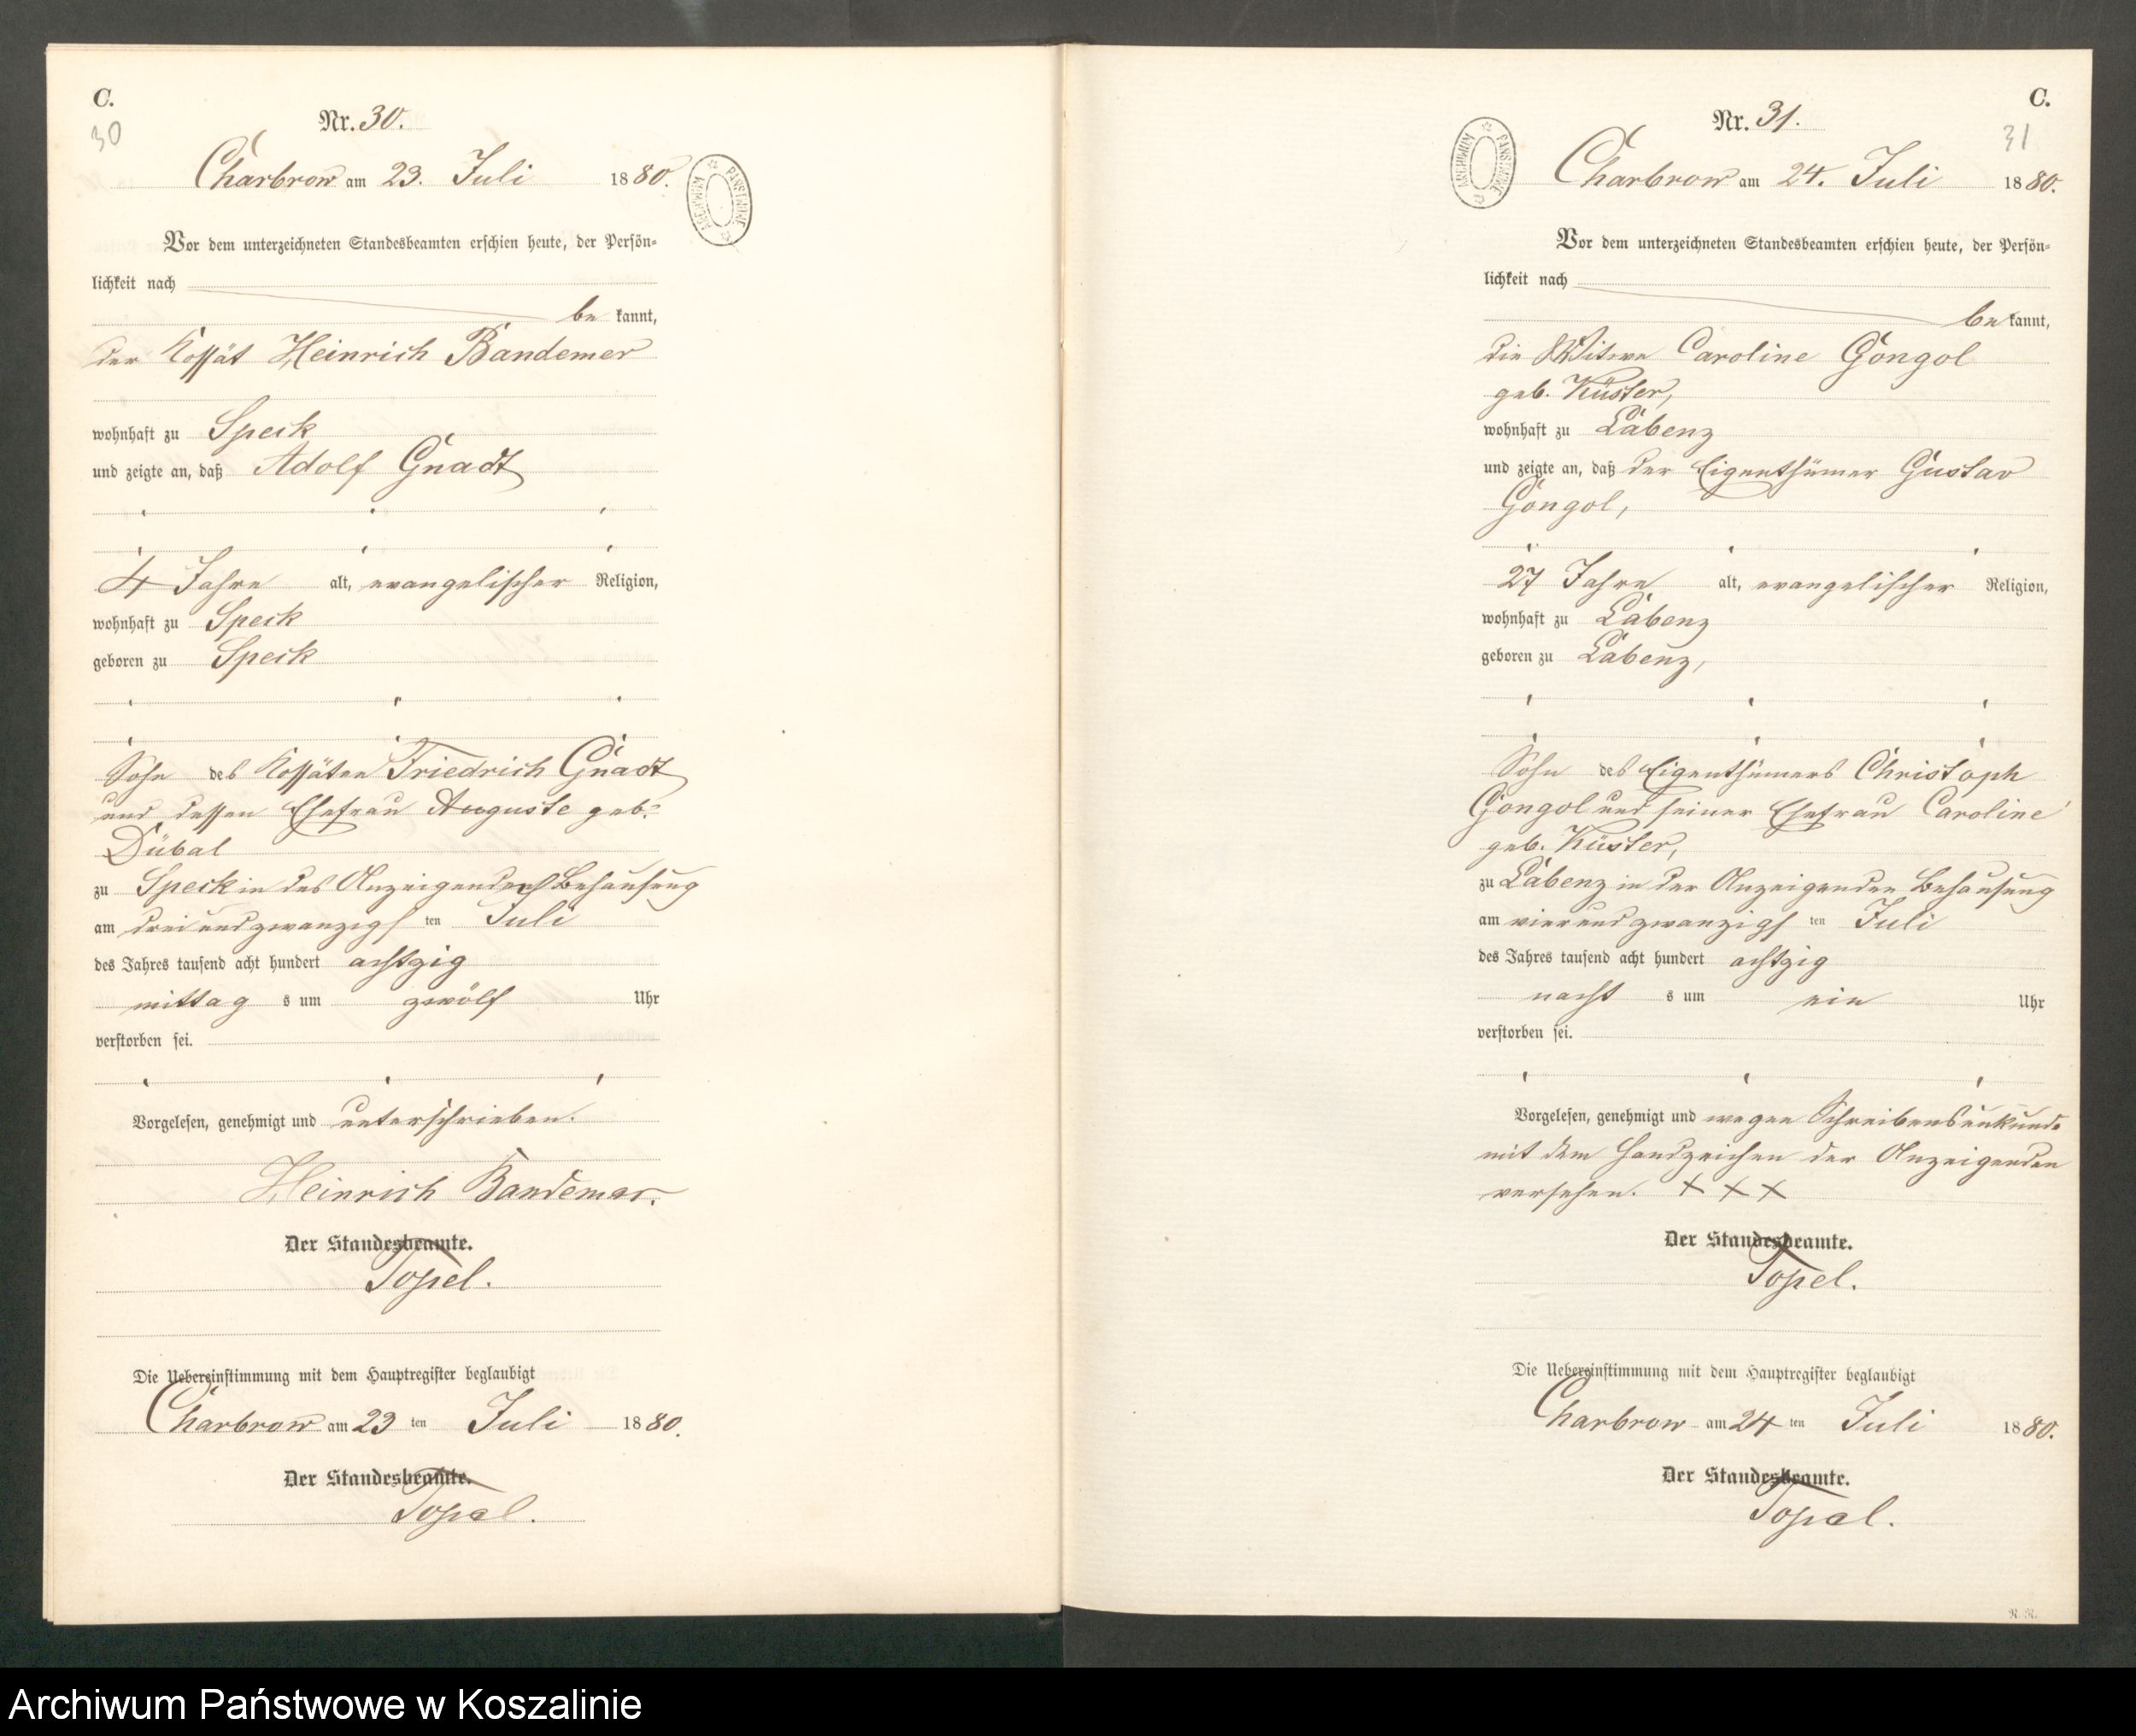 C.
30
Nr. 30.
Charbrow am 23. Juli 1880.
ARCHIWUM PAŃSTWOWE
Vor dem unterzeichneten Standesbeamten erschien heute, der Persön-
lichkeit nach
be kannt,
der Kossät Heinrich Bandemer
wohnhaft zu Speck
und zeigte an, daß Adolf Gnadt
4 Jahre alt, evangelischer Religion,
wohnhaft zu Speck
geboren zu Speck
Sohn des Kossäten Friedrich Gnadt
und dessen Ehefrau Auguste geb.
Dübal
zu Speck in des Anzeigenden Behausung
am drei und zwanzigsten Juli
des Jahres tausend acht hundert achtzig
mittags um zwölf Uhr
verstorben sei.
Vorgelesen, genehmigt und unterschrieben.
Heinrich Bandemer.
Der Standesbeamte.
Topel.
Die Uebereinstimmung mit dem Hauptregister beglaubigt
Charbrow am 23ten Juli 1880.
Der Standesbeamte.
Topel.
C.
31
Nr. 31.
ARCHIWUM PAŃSTWOWE
Charbrow am 24. Juli 1880.
Vor dem unterzeichneten Standesbeamten erschien heute, der Persön-
lichkeit nach
be kannt,
die Witwe Caroline Gongol
geb. Küster,
wohnhaft zu Labenz
und zeigte an, daß der Eigenthümer Gustav
Gongol,
27 Jahre alt, evangelischer Religion,
wohnhaft zu Labenz
geboren zu Labenz,
Sohn des Eigenthümers Christoph
Gongol und seiner Ehefrau Caroline
geb. Küster,
zu Labenz in der Anzeigenden Behausung
am vier und zwanzigsten Juli
des Jahres tausend acht hundert achtzig
nachts um ein Uhr
verstorben sei.
Vorgelesen, genehmigt und wegen Schreibensunkunde
mit dem Handzeichen der Anzeigenden
versehen. X X X
Der Standesbeamte.
Topel.
Die Uebereinstimmung mit dem Hauptregister beglaubigt
Charbrow am 24ten Juli 1880.
Der Standesbeamte.
Topel.
Archiwum Państwowe w Koszalinie